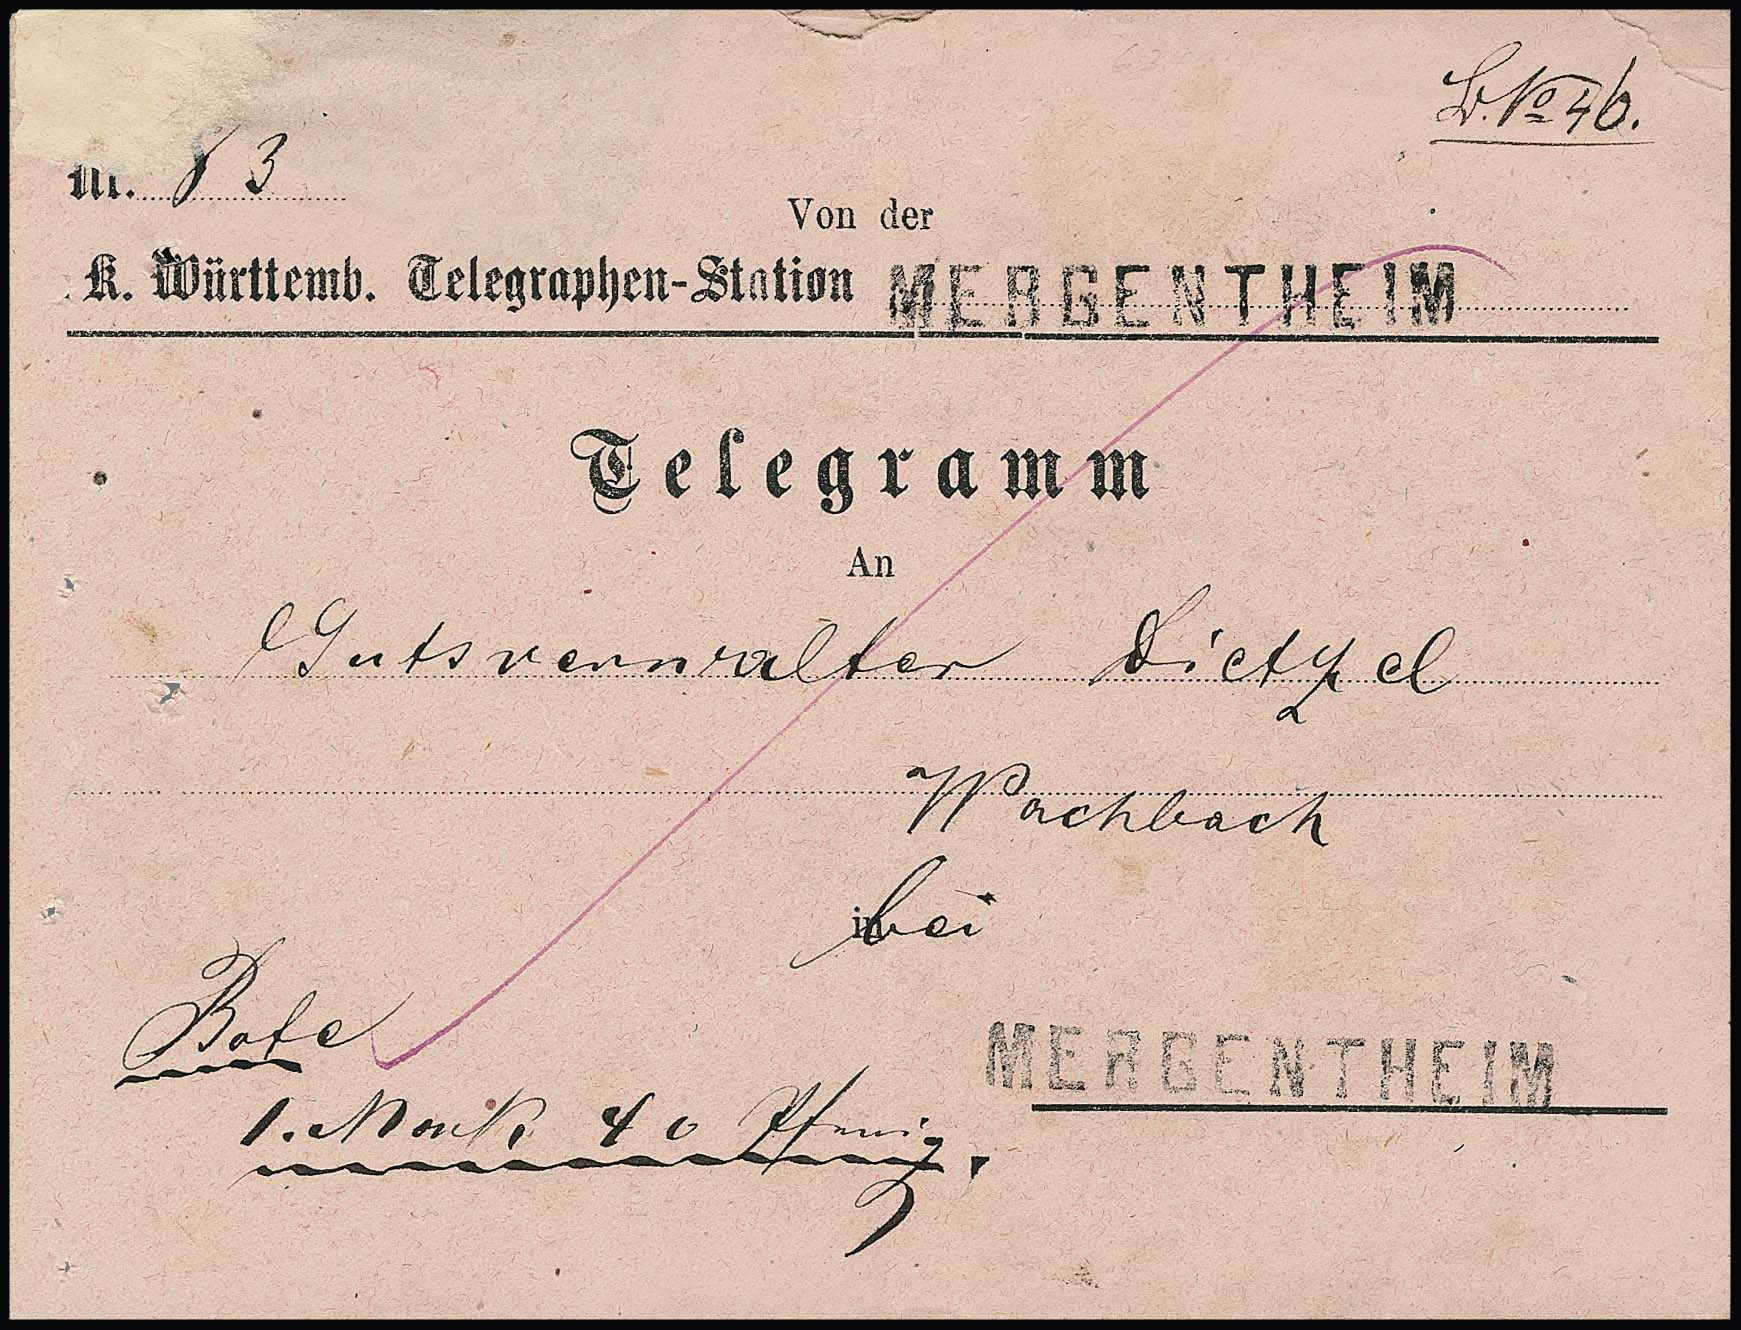 L. No 46.
Nr. 83
Von der
K. Württemb. Telegraphen-Station MERGENTHEIM
Telegramm
An
Gutsverwalter Dietzel
Wachbach
in bei
MERGENTHEIM
Bote
1. Mark 40 Pfennig.